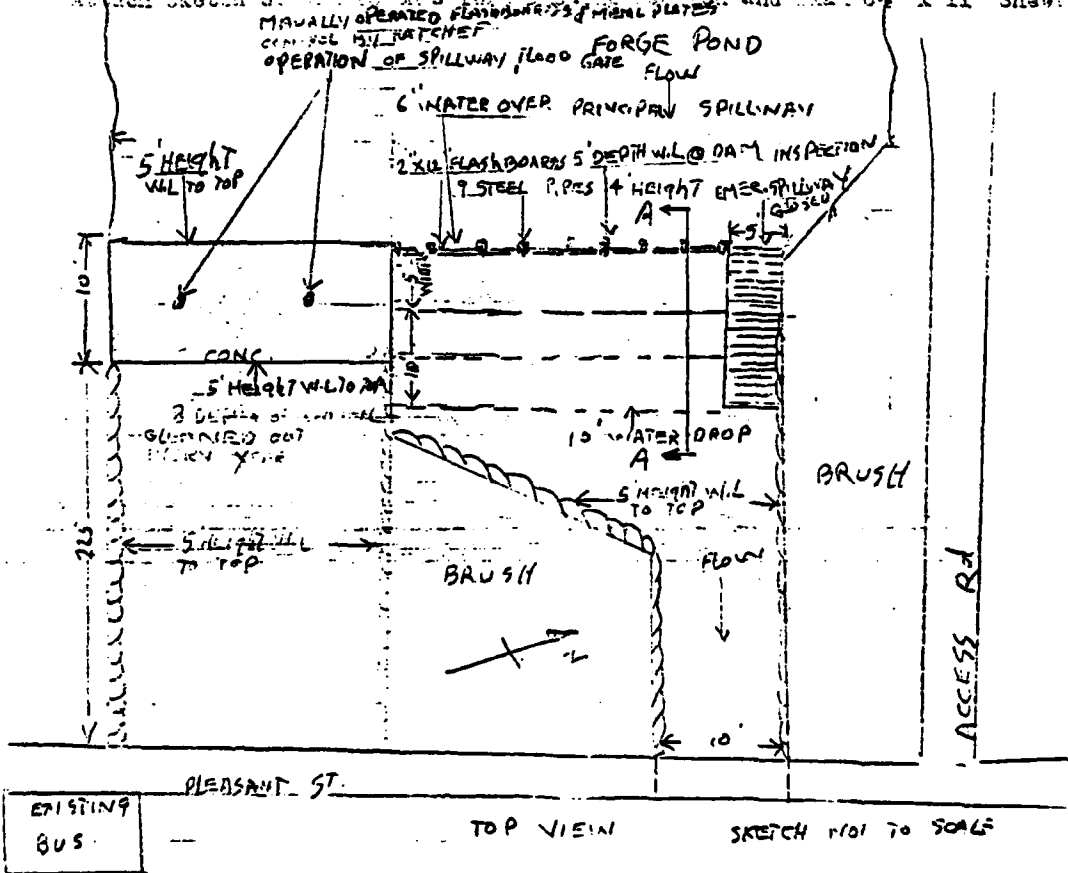 MAUALLY OPERATED FLASHBOARDS & METAL PLATES
BY RATCHET
OPERATION OF SPILLWAY FLOOD GATE
FORGE POND
FLOW
6" WATER OVER PRINCIPAL SPILLWAY
2"X12" FLASHBOARDS 5' DEPTH W.L @ DAM INSPECTION
9 STEEL PIPES 4' HEIGHT EMER. SPILLWAY
CLOSED
5' HEIGHT
W.L TO TOP
A
5'
10'
5'
WIDE
10'
CONC.
5' HEIGHT W.L TO
3' DEPTH OF
CLEANED OUT
EVERY YEAR
10' WATER DROP
A
BRUSH
5' HEIGHT W.L
TO TOP
225
5' HEIGHT W.L
TO TOP
BRUSH
FLOW
ACCESS Rd
10'
PLEASANT ST.
EXISTING
BUS.
TOP VIEW
SKETCH NOT TO SCALE